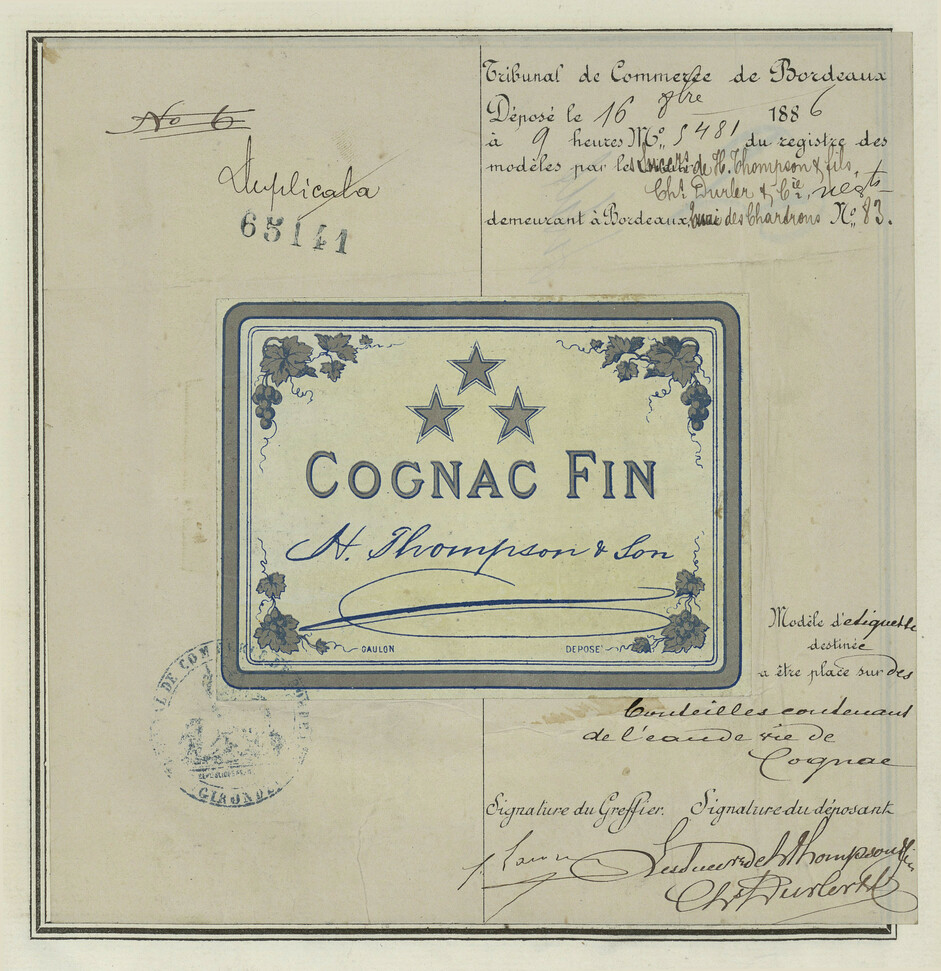 No 6
Duplicata
65141
Tribunal de Commerce de Bordeaux
Déposé le 16 8bre 1886
à 9 heures M. N° 5481 du registre des
modèles par les Succrs de H. Thompson & fils,
Chs Durler & Cie, negts
demeurant à Bordeaux, Quai des Chartrons N° 83.
COGNAC FIN
H. Thompson & Son
GAULON DEPOSE
Modèle d'etiquette
destinée
a être placé sur des
bouteilles contenant
de l'eau de vie de
Cognac
Signature du Greffier. Signature du déposant
Les Succrs de H Thompson & fils
Chs Durler & Cie
GIRONDE